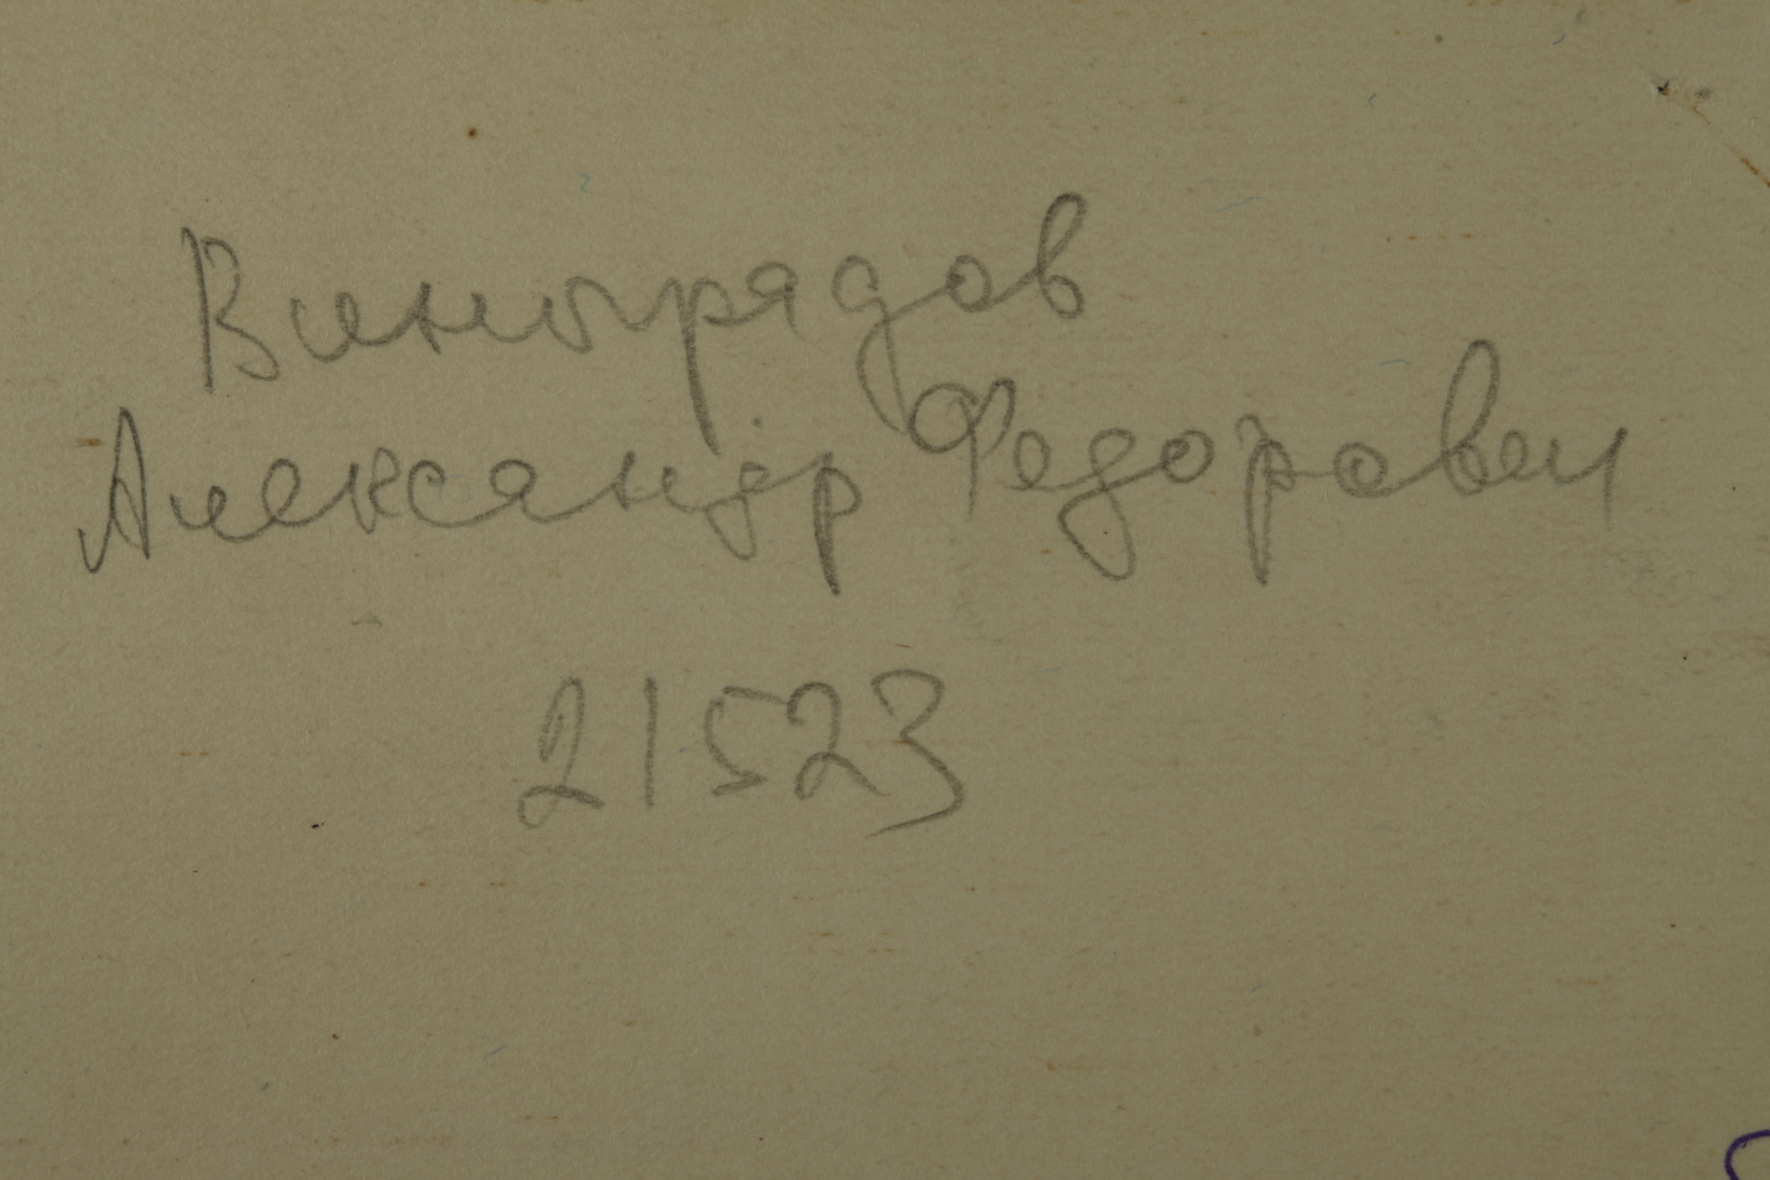 Виноградов
Александр Федорович
21523